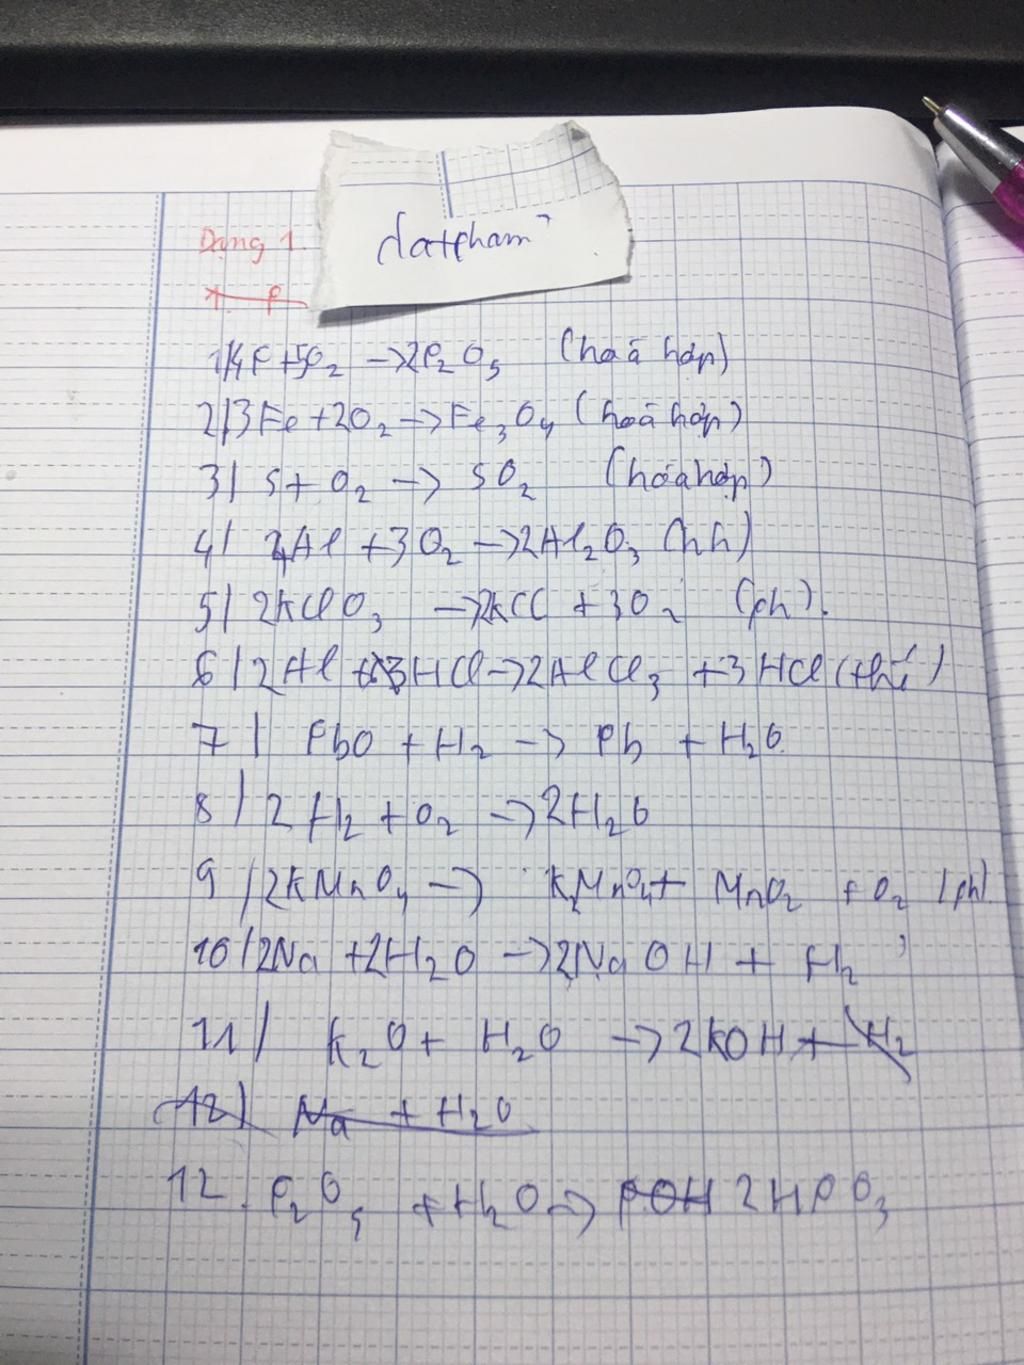 datpham
Dạng 1.
1/ 4P + 5O₂ → 2P₂O₅ (hoá hợp)
2/ 3Fe + 2O₂ → Fe₃O₄ (hoá hợp)
3/ S + O₂ → SO₂ (hoá hợp)
4/ 4Al + 3O₂ → 2Al₂O₃ (hh)
5/ 2KClO₃ → 2KCl + 3O₂ (ph).
6/ 2Al + 3HCl → 2AlCl₃ + 3HCl (thế)
7/ PbO + H₂ → Pb + H₂O
8/ 2H₂ + O₂ → 2H₂O
9/ 2KMnO₄ → K₂MnO₄ + MnO₂ + O₂ (ph)
10/ 2Na + 2H₂O → 2NaOH + H₂
11/ K₂O + H₂O → 2KOH + H₂
12/ Na + H₂O
12. P₂O₅ + H₂O → POH 2HPO₃